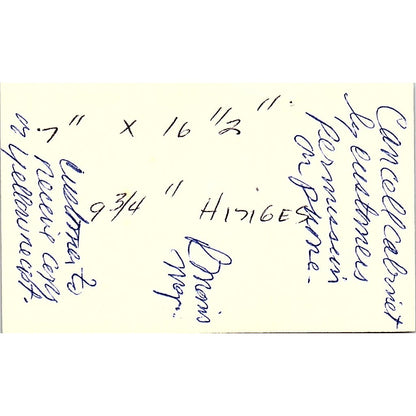 7" x 16 1/2".
9 3/4" HINGES
Cancell Cabinet
by customers
permission
on phone.
Customer to
receive copy
of yellow receipt.
R Morris
Mgr.